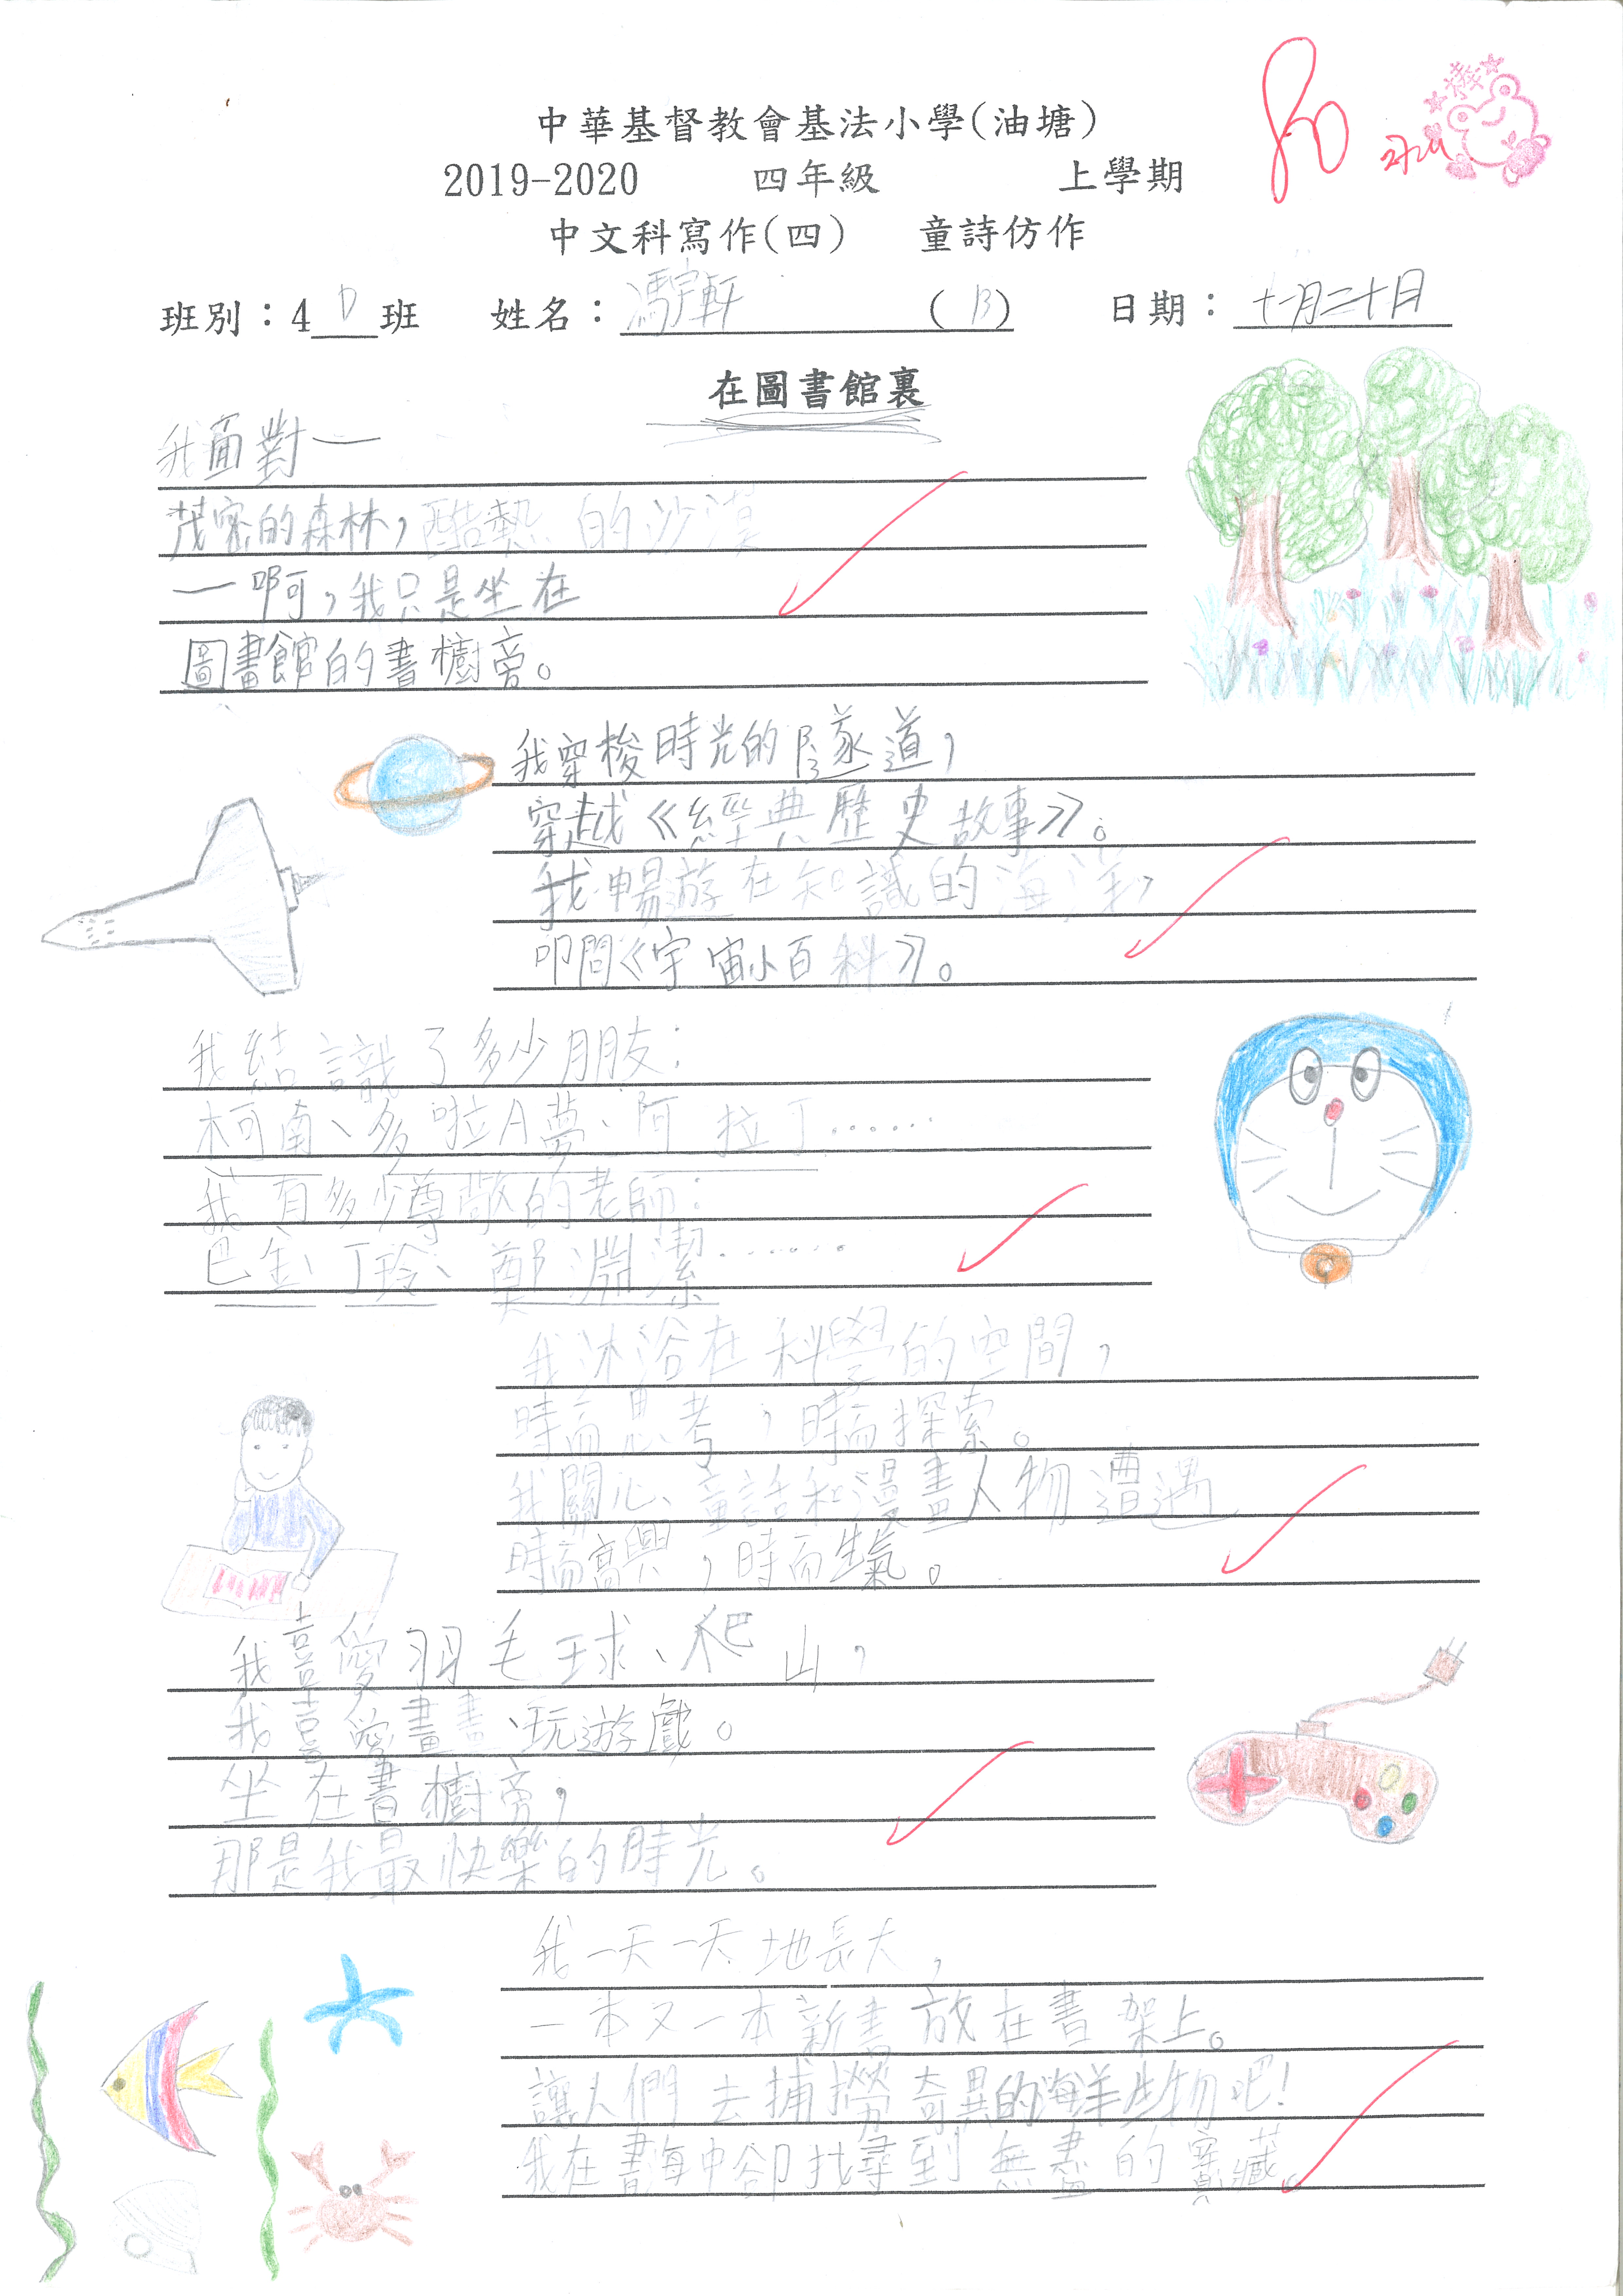 中華基督教會基法小學(油塘)
2019-2020 四年級 上學期
中文科寫作(四) 童詩仿作
80
棒
班別：4 D 班 姓名：馮宇軒 (13) 日期：十一月二十日
在圖書館裏
我面對—
茂密的森林，酷熱的沙漠
—啊，我只是坐在
圖書館的書櫥旁。
我穿梭時光的隧道，
穿越《經典歷史故事》。
我暢遊在知識的海洋，
叩問《宇宙小百科》。
我結識了多少朋友：
柯南、多啦A夢、阿拉丁……
我有多少尊敬的老師：
巴金、丁玲、鄭淵潔……
我沐浴在科學的空間，
時而思考，時而探索。
我關心童話和漫畫人物遭遇
時而高興，時而生氣。
我喜愛羽毛球、爬山，
我喜愛畫畫、玩遊戲。
坐在書櫥旁，
那是我最快樂的時光。
我一天一天地長大，
一本又一本新書放在書架上。
讓人們去捕撈奇異的海洋生物吧！
我在書海中卻找尋到無盡的寶藏。